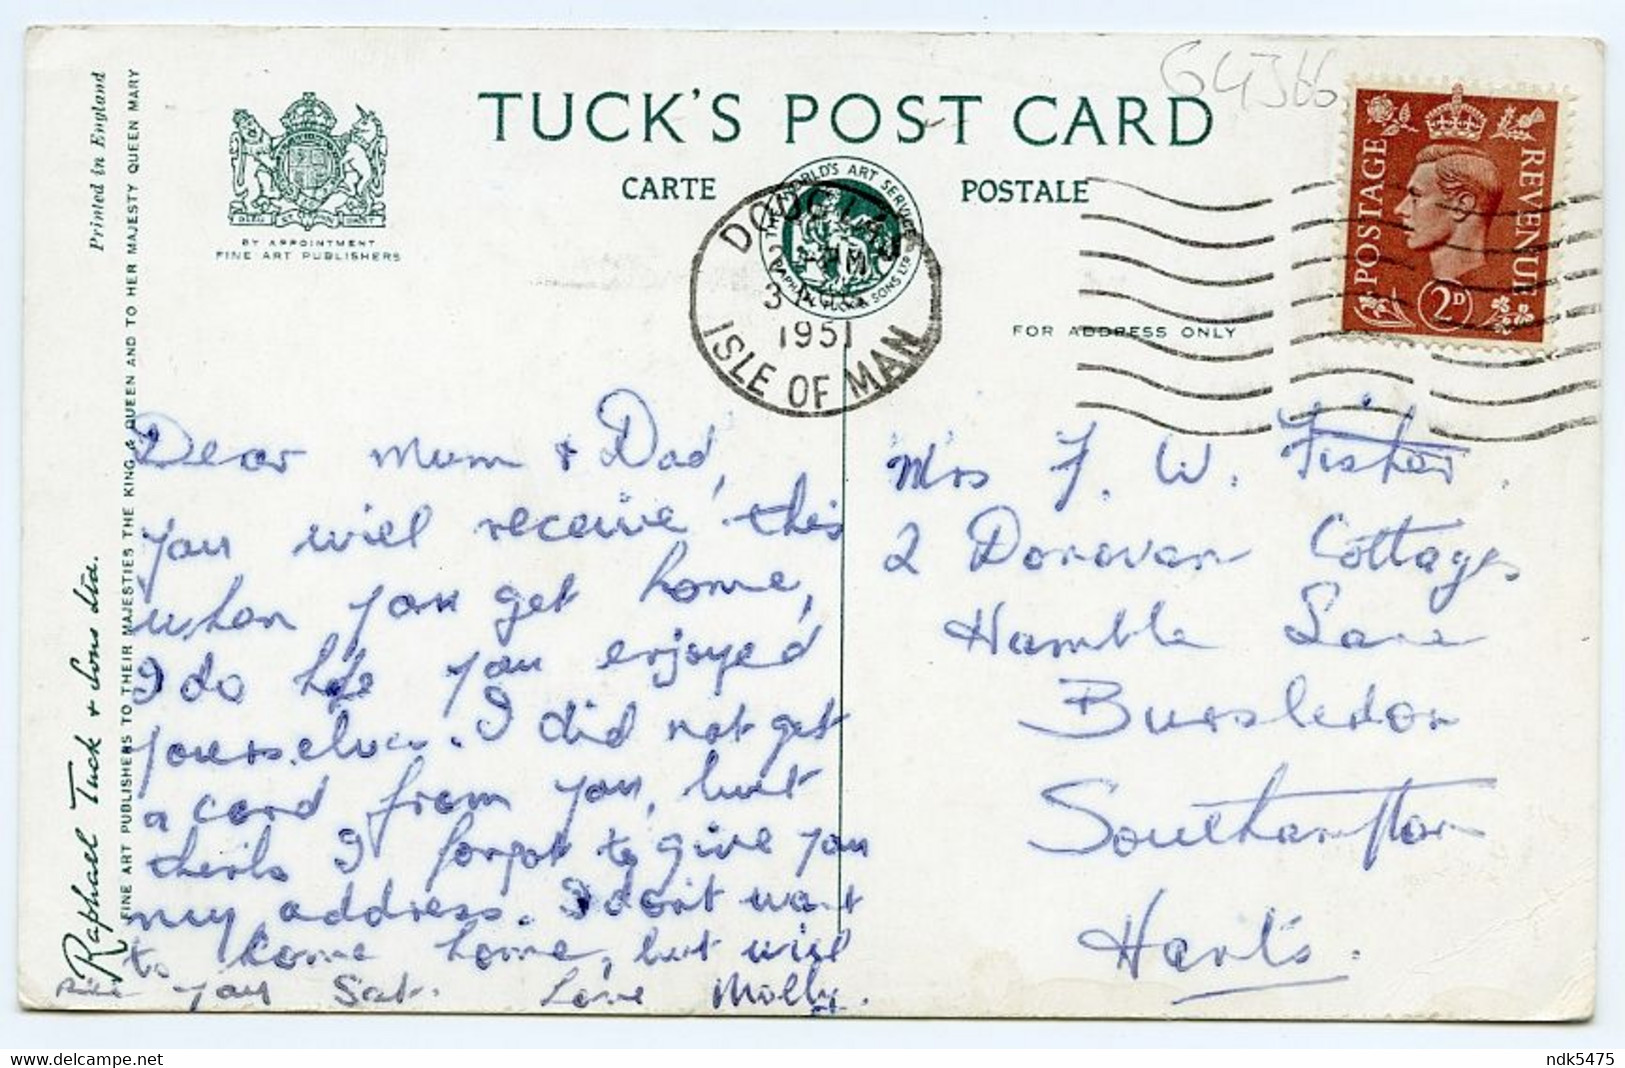 TUCK'S POST CARD
CARTE POSTALE
BY APPOINTMENT
FINE ART PUBLISHERS
Printed in England
Raphael Tuck & Sons Ltd.
FINE ART PUBLISHERS TO THEIR MAJESTIES THE KING & QUEEN AND TO HER MAJESTY QUEEN MARY
THE WORLD'S ART SERVICE
RAPHAEL TUCK & SONS LTD
DOUGLAS
3
1951
ISLE OF MAN
FOR ADDRESS ONLY
POSTAGE REVENUE
2D
Dear Mum & Dad,
you will receive this
when you get home,
I do hope you enjoyed
yourselves. I did not get
a card from you, but
I forgot to give you
my address. I don't want
to come home, but will
you Sat. Love Molly.
Mrs F. W. Fisher.
2 Donovan Cottages
Hamble Lane
Bursledon
Southampton
Hants.
ndk5475